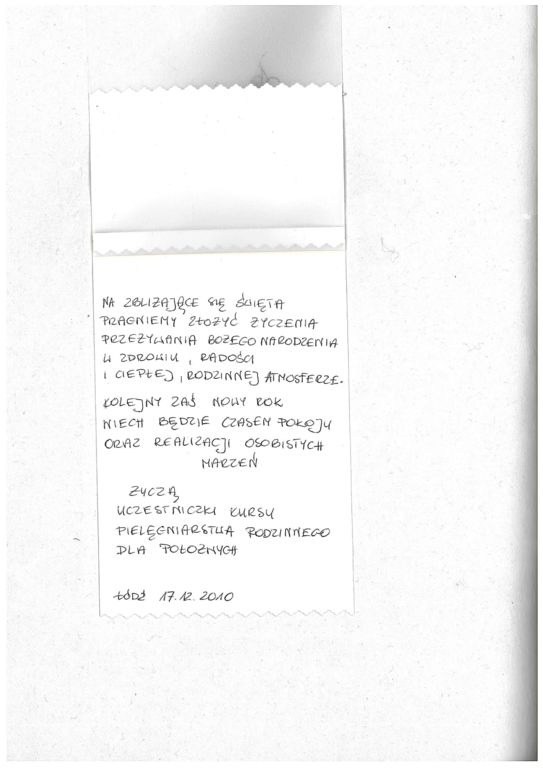 NA ZBLIŻAJĄCE SIĘ ŚWIĘTA
PRAGNIEMY ZŁOŻYĆ ŻYCZENIA
PRZEŻYWANIA BOŻEGO NARODZENIA
W ZDROWIU, RADOŚCI
I CIEPŁEJ, RODZINNEJ ATMOSFERZE.
KOLEJNY ZAŚ NOWY ROK
NIECH BĘDZIE CZASEM POKOJU
ORAZ REALIZACJI OSOBISTYCH
MARZEŃ
ŻYCZĄ
UCZESTNICZKI KURSU
PIELĘGNIARSTWA RODZINNEGO
DLA POŁOŻNYCH
ŁÓDŹ 17.12.2010